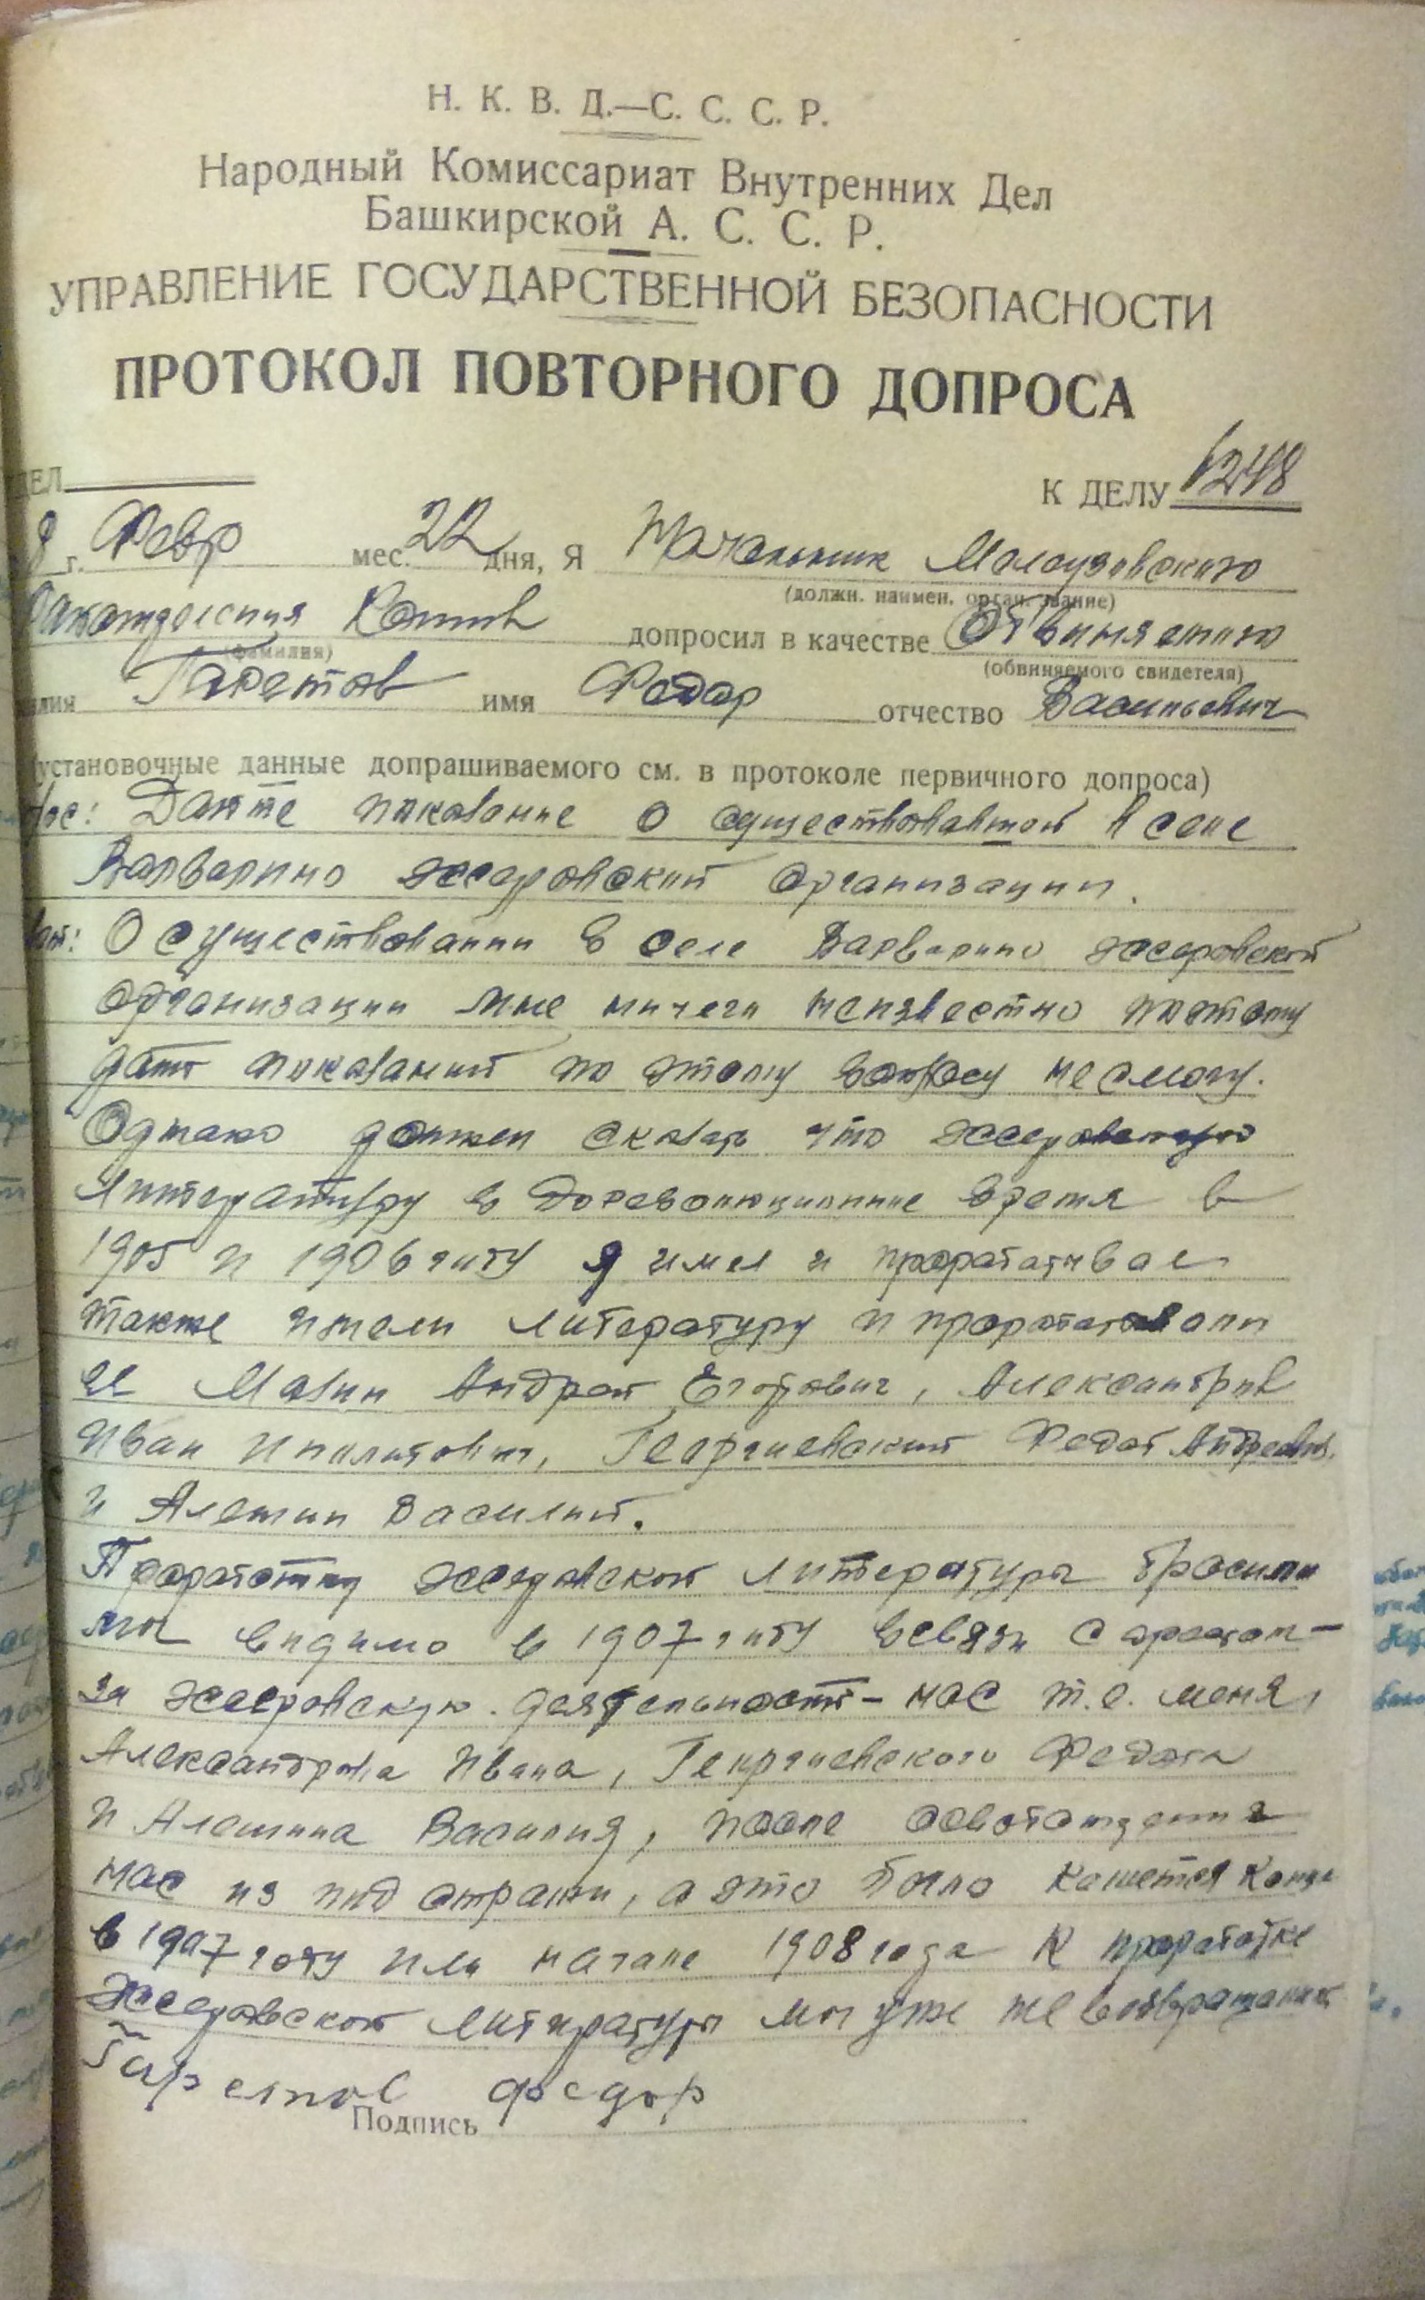 Н. К. В. Д.—С. С. С. Р.
Народный Комиссариат Внутренних Дел
Башкирской А. С. С. Р.
УПРАВЛЕНИЕ ГОСУДАРСТВЕННОЙ БЕЗОПАСНОСТИ
ПРОТОКОЛ ПОВТОРНОГО ДОПРОСА
ДЕЛ
К ДЕЛУ 1248
8 г. Февр мес. 22 дня, Я Начальник Мелеузовского
(должн. наимен. орган. звание)
допросил в качестве Обвиняемого
(фамилия)
(обвиняемого свидетеля)
лия Гаретов имя Федор отчество Васильевич
установочные данные допрашиваемого см. в протоколе первичного допроса)
рос: Дайте показание о существовавшей в селе
Варварино эссеровской организации.
вет: О существовании в селе Варварино эссеровской
организации мне ничего неизвестно поэтому
дать показаний по этому вопросу несмогу.
Однако должен сказать что эссеровскую
литературу в дореволюционное время в
1905 и 1906 году я имел и прорабатывал
также имели литературу и прорабатовали
ее Мазин Андрей Егорович, Александров
Иван Иполитович, Георгиевский Федот Андреевич.
и Алешин Василий.
Проработку эссеровской литературы бросили
мы видимо в 1907 году всвязи с арестом-
за эссеровскую деятельность- нас т.е. меня,
Александрова Ивана, Георгиевского Федота
и Алешина Василия, после освобождения
нас из под стражи, а это было кажется конце
в 1907 году или начале 1908 года к проработке
Эссеровской литературы мы уже не возвращались
Гаретов Федор
Подпись